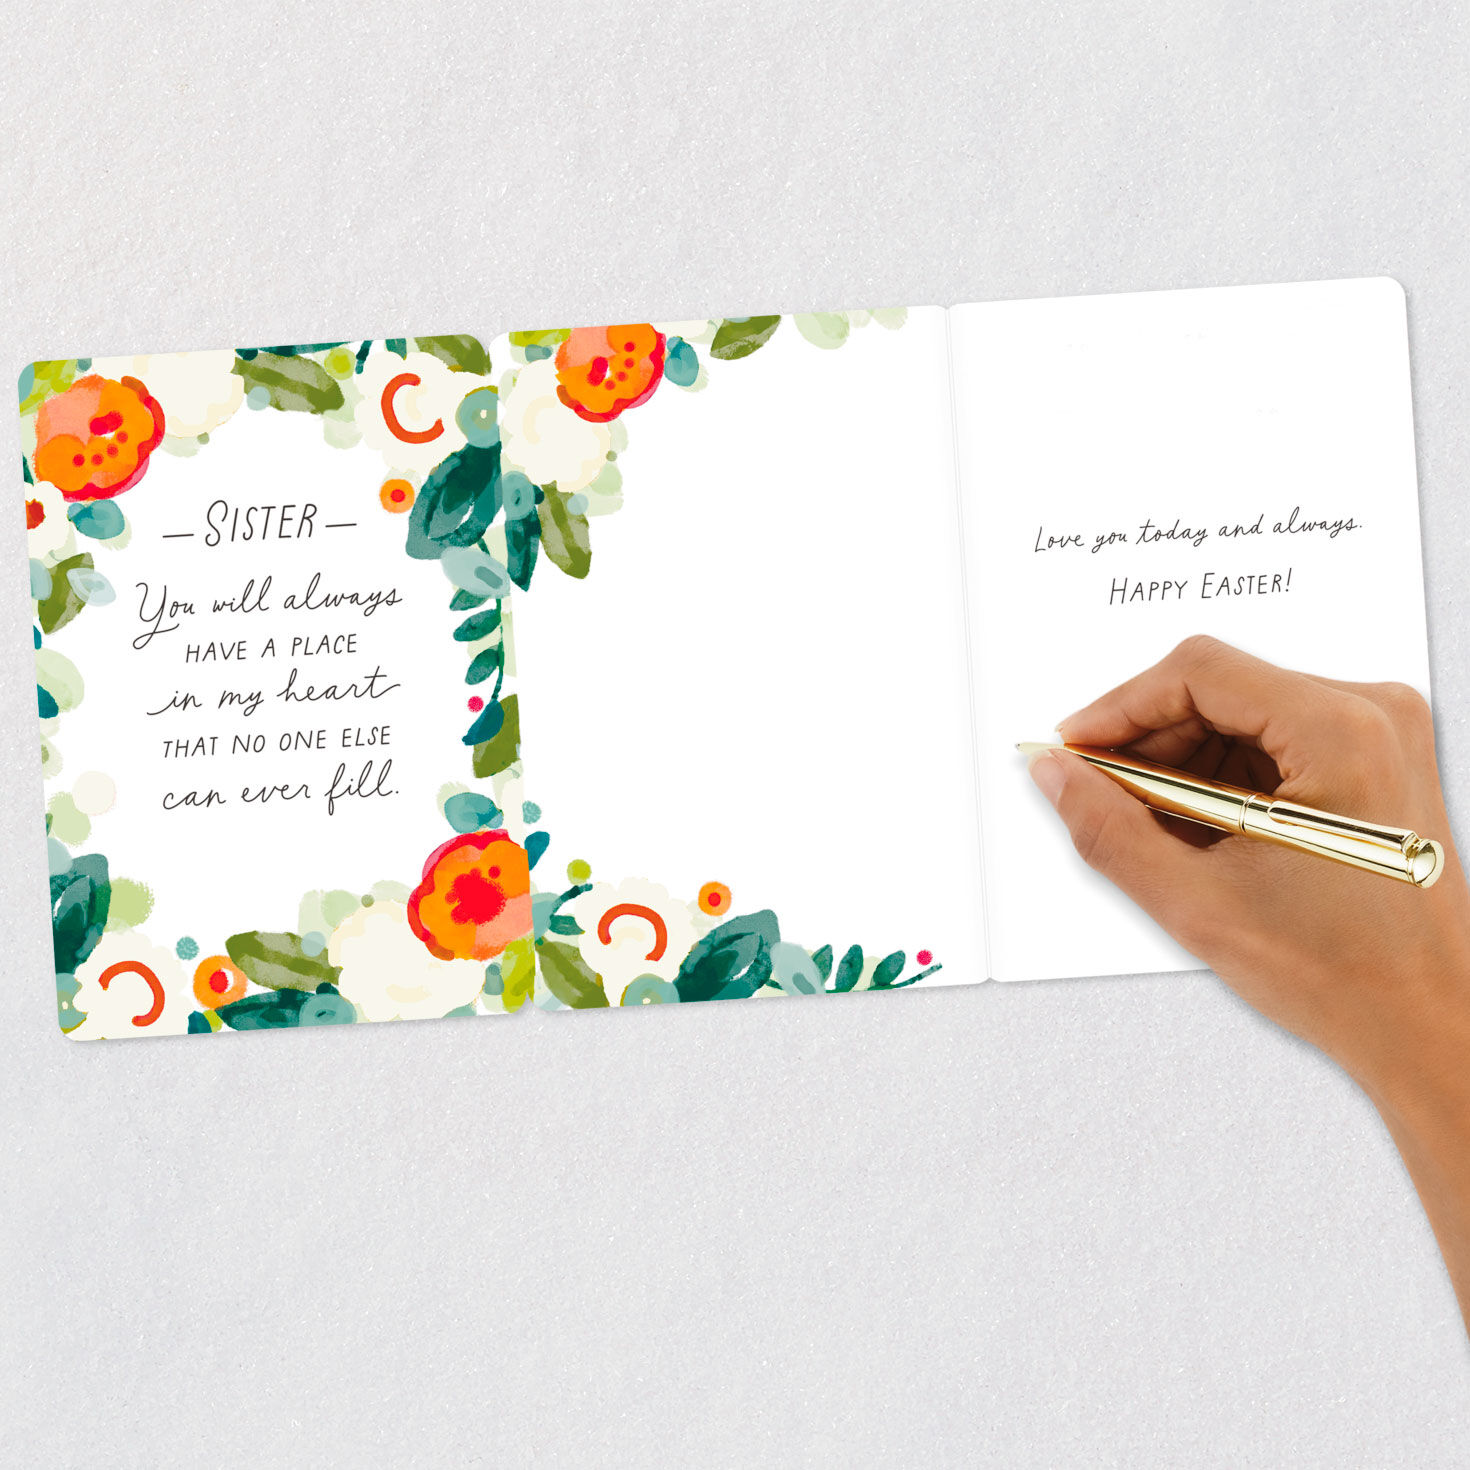 — SISTER —
You will always
HAVE A PLACE
in my heart
THAT NO ONE ELSE
can ever fill.
Love you today and always.
HAPPY EASTER!